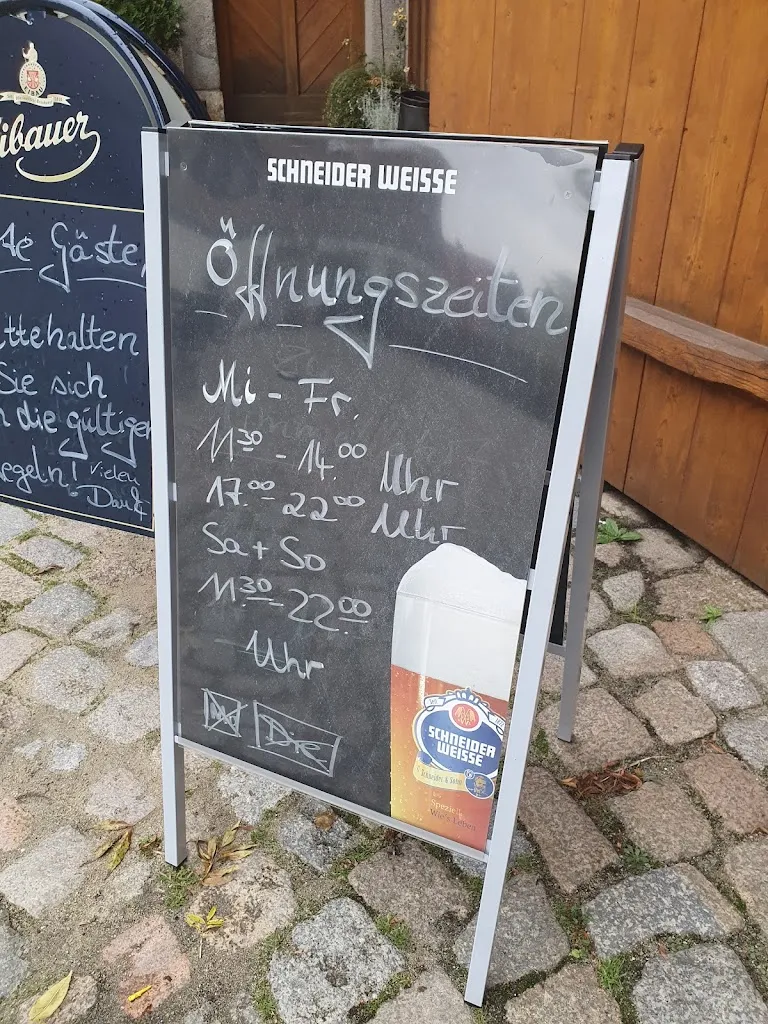 ibauer
Gäste,
ttehalten
Sie sich
die gültigen
egeln! Vielen
Dank
SCHNEIDER WEISSE
Öffnungszeiten
Mi - Fr.
11.30 - 14.00 Uhr
17.00 - 22.00 Uhr
Sa + So
11.30 - 22.00
Uhr
Mo Die
SCHNEIDER
WEISSE
G. Schneider & Sohn